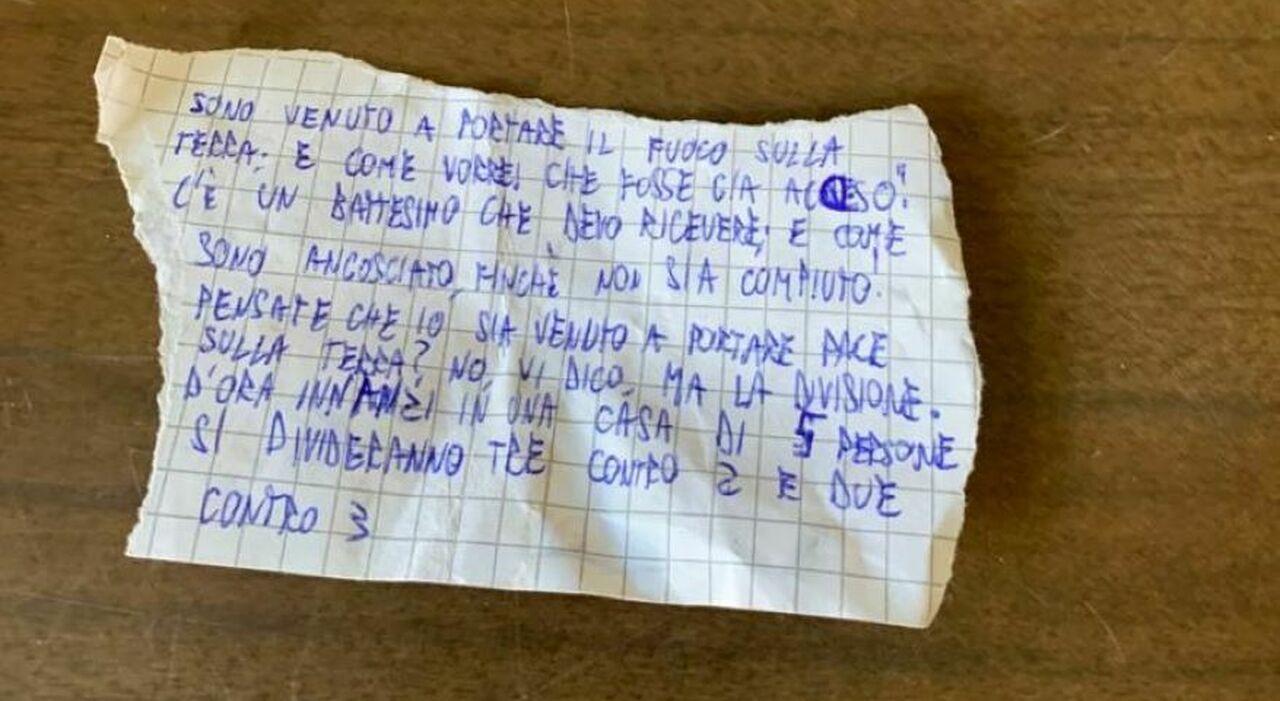 SONO VENUTO A PORTARE IL FUOCO SULLA
TERRA. E COME VORREI CHE FOSSE GIA ACCESO!
C'È UN BATTESIMO CHE DEVO RICEVERE; E COME
SONO ANGOSCIATO, FINCHÈ NON SIA COMPIUTO!
PENSATE CHE IO SIA VENUTO A PORTARE PACE
SULLA TERRA? NO, VI DICO, MA LA DIVISIONE.
D'ORA INNANZI IN UNA CASA DI 5 PERSONE
SI DIVIDERANNO TRE CONTRO 2 E DUE
CONTRO 3